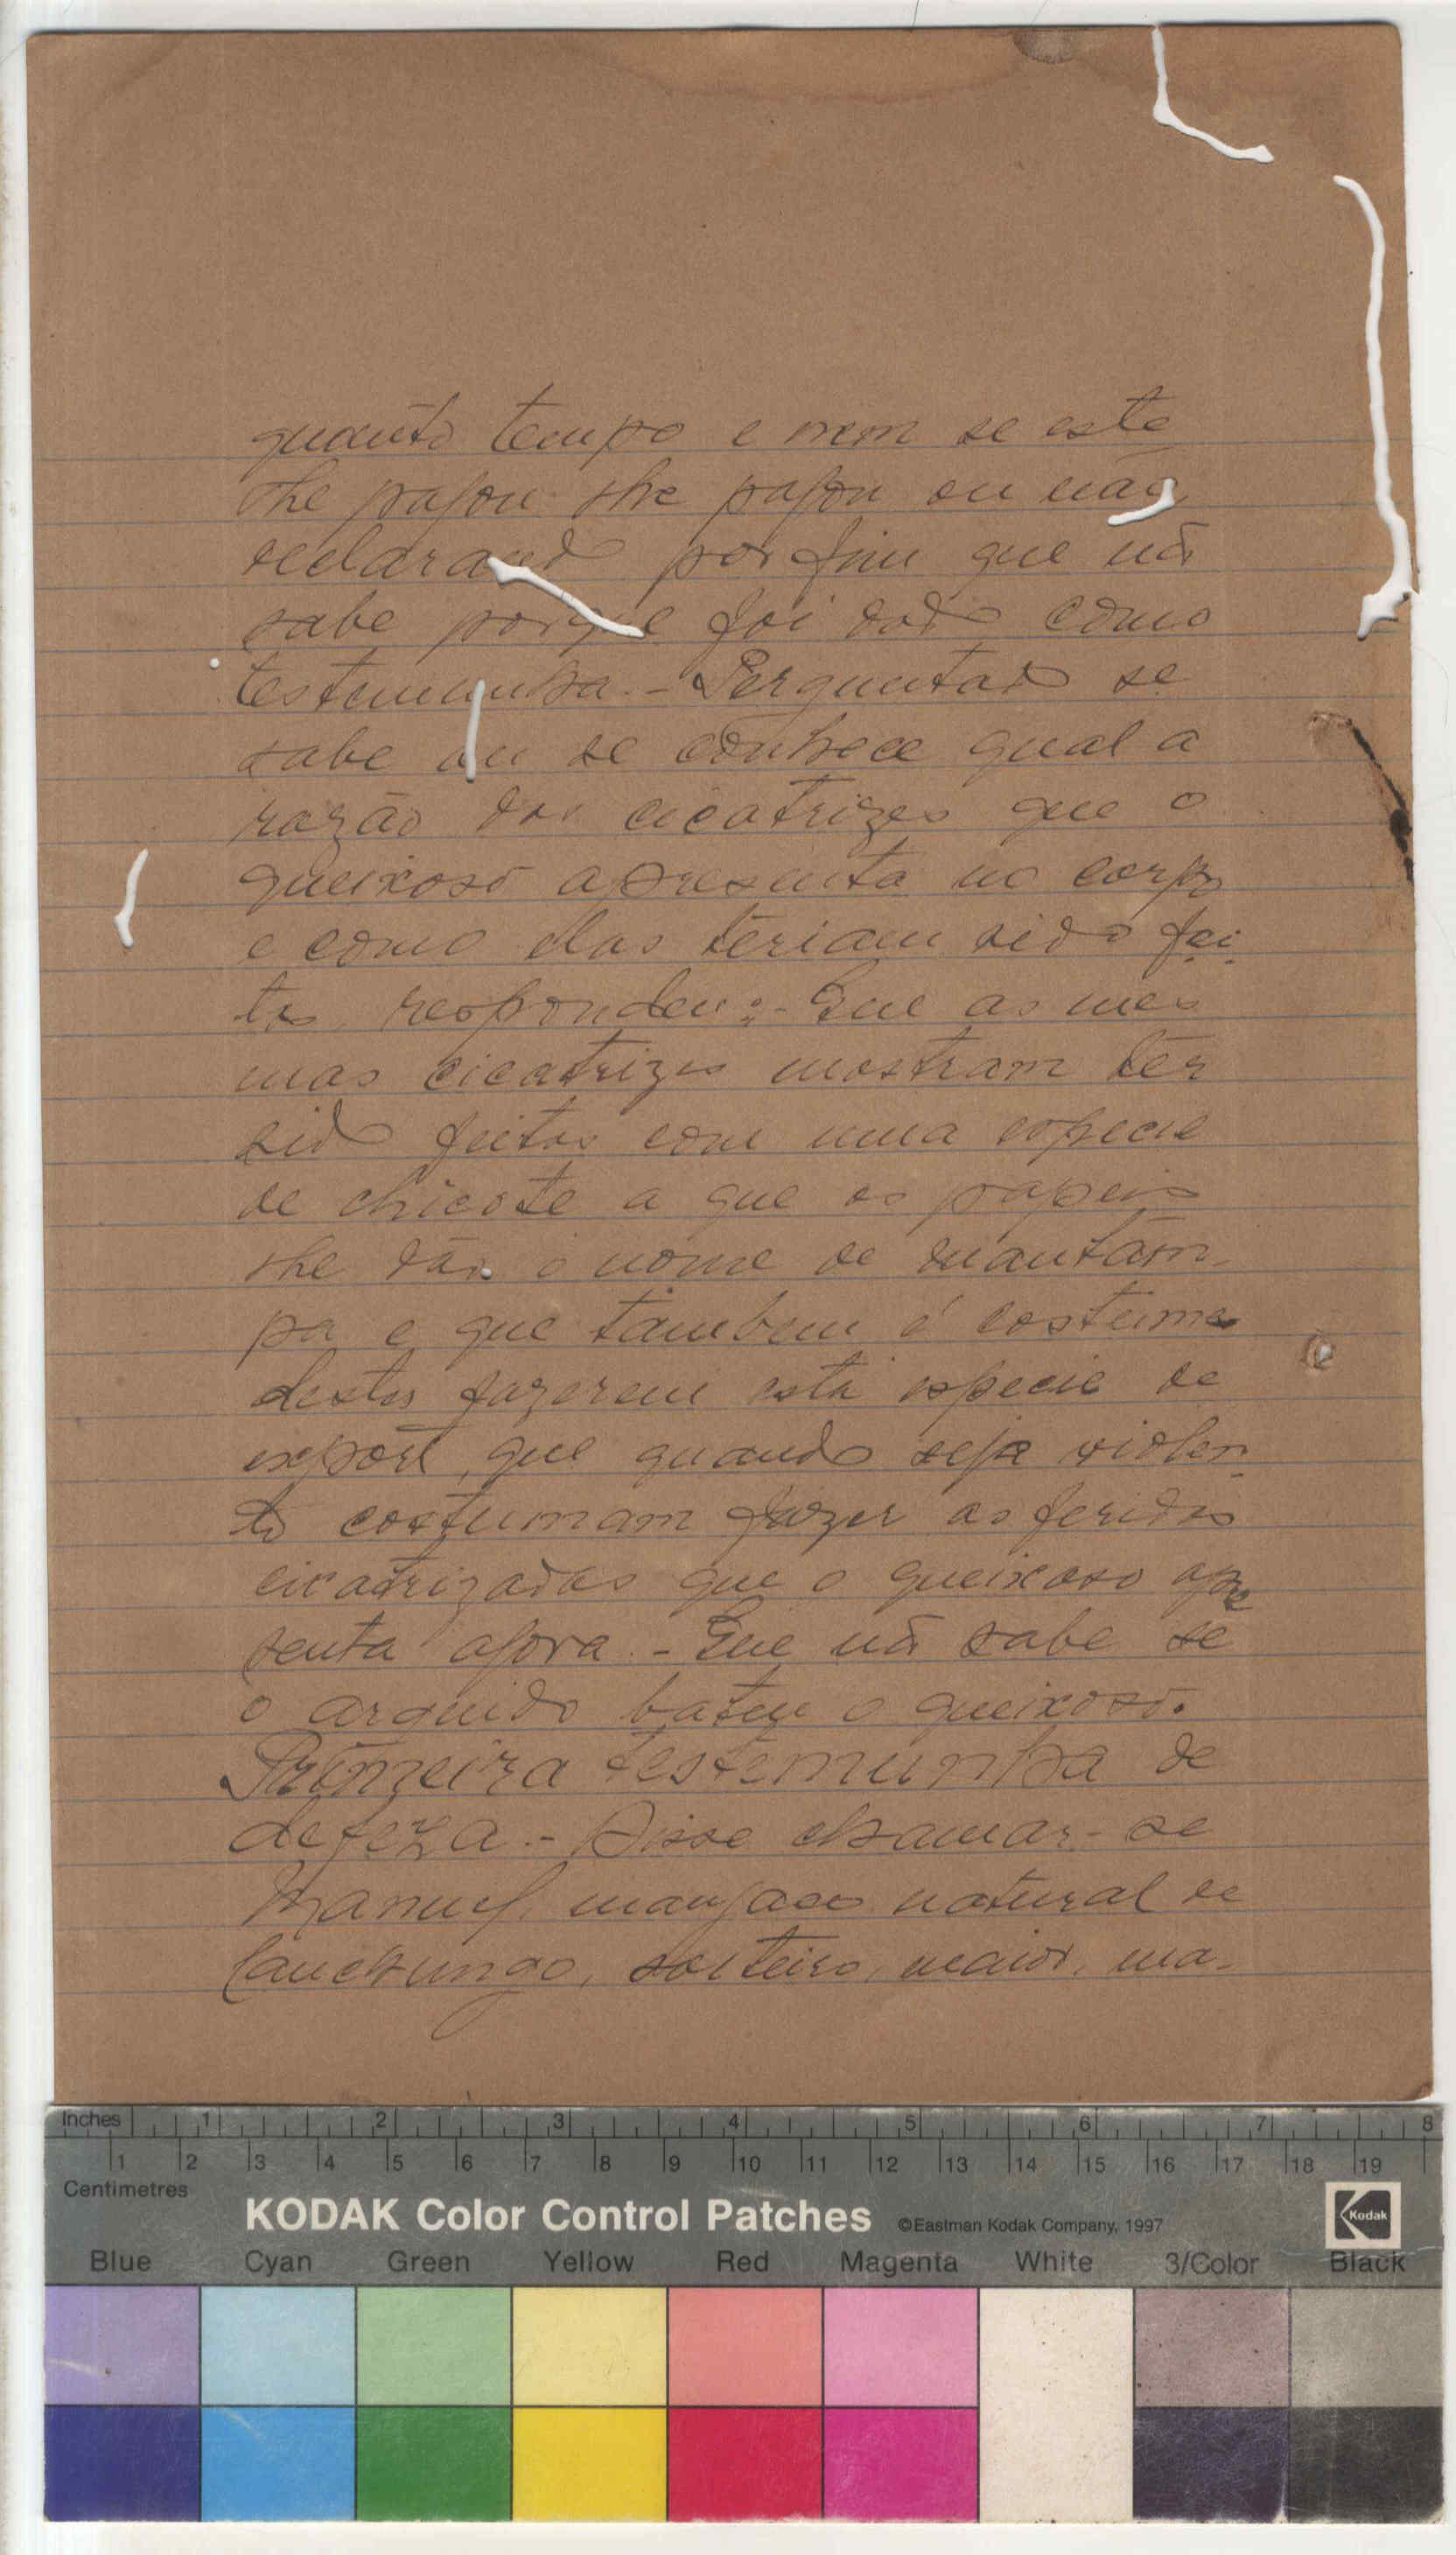 quanto tempo e nem se este
lhe pagou lhe pagou ou não,
declarando por fim que não
sabe porque foi dado como
testemunha.- Perguntado se
sabe ou se conhece qual a
razão das cicatrizes que o
queixoso apresenta no corpo
e como elas teriam sido fei-
tas, respondeu:- Que as mes
mas cicatrizes mostram ter
sido feitas com uma especie
de chicote a que os papeis
lhe dão o nome de mantam-
pa e que tambem é costume
destes fazerem esta especie de
, que quando seja violen-
to costumam fazer as feridas
cicatrizadas que o queixoso apre
senta agora.- Que não sabe se
o arguido bateu o queixoso.
Primeira testemunha de
defeza.- Disse chamar-se
Manuel, manjaco natural de
Canchungo, solteiro, maior, ma-
Inches 1 2 3 4 5 6 7 8
1 2 3 4 5 6 7 8 9 10 11 12 13 14 15 16 17 18 19
Centimetres
KODAK Color Control Patches ©Eastman Kodak Company, 1997 Kodak
Blue Cyan Green Yellow Red Magenta White 3/Color Black